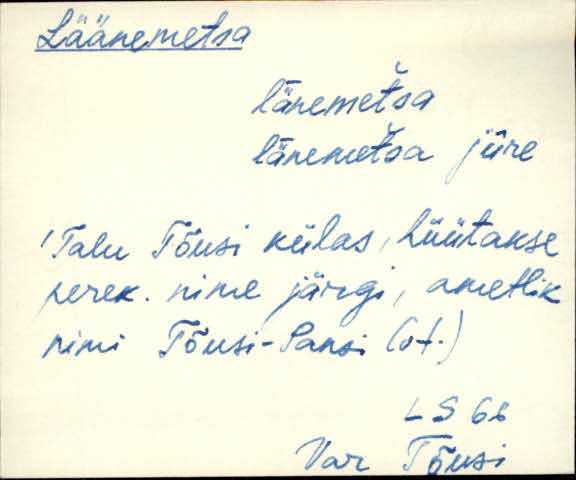 Läänemetsa
länemeťsa
länemeťsa jüre
'Talu Tõusi külas, hüütakse
perek. nime järgi, ametlik
nimi Tõusi-Sansi (vt.)
LS 66
Var Tõusi